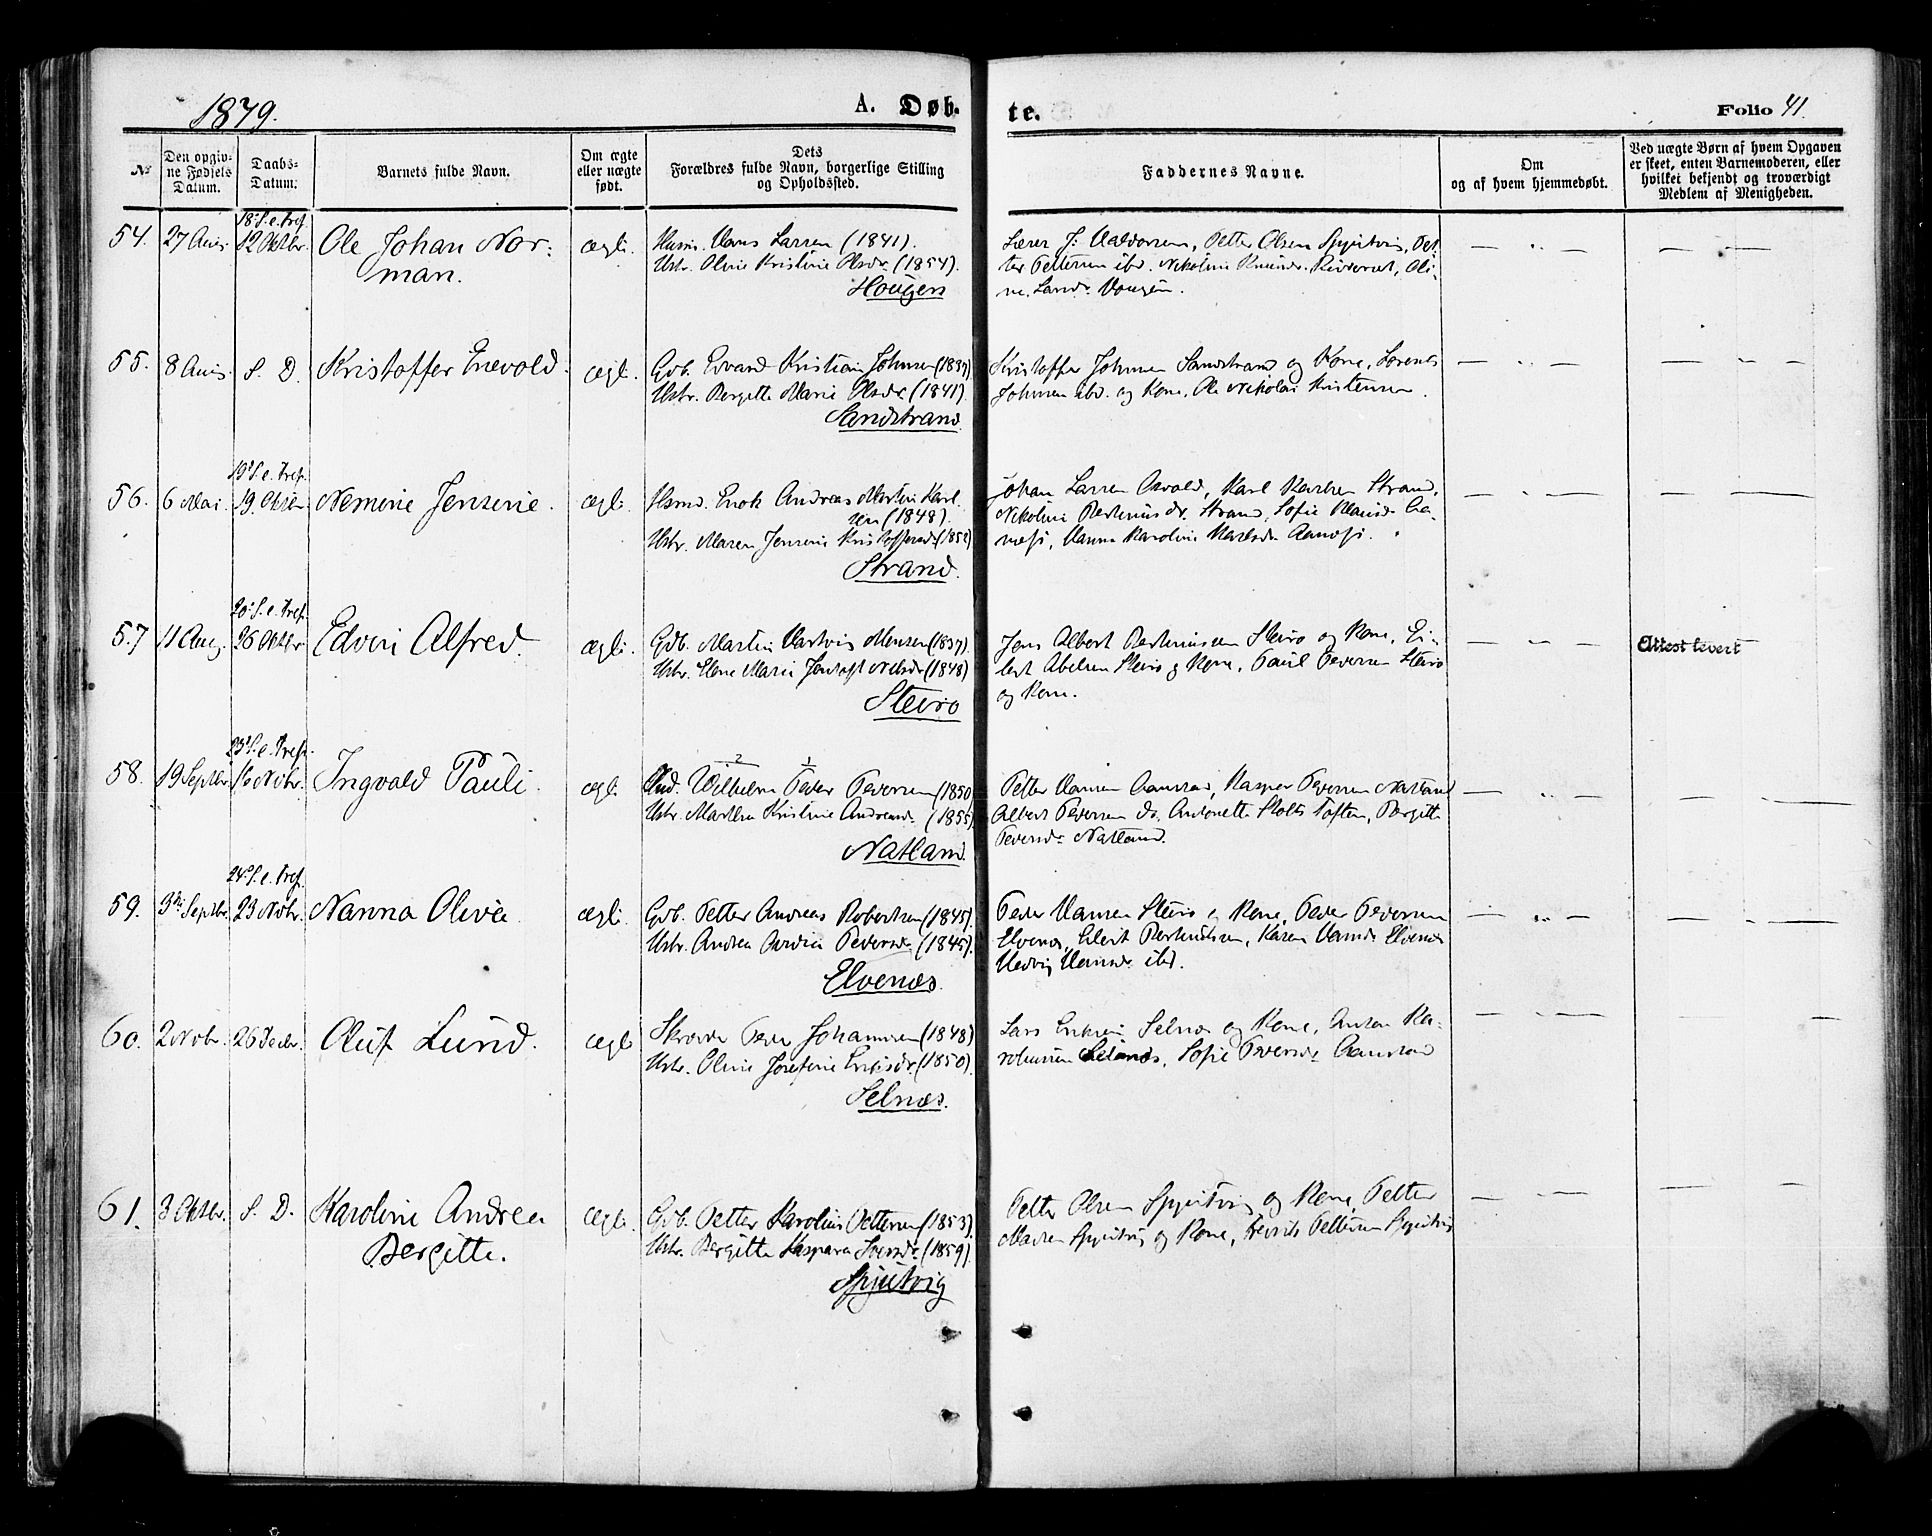 1879.
A. Døb-
te.
Folio 41.
No
Den opgiv-
ne Fødsels
Datum.
Daabs-
Datum.
Barnets fulde Navn.
Om ægte
eller uægte
født.
Dets
Forældres fulde Navn, borgerlige Stilling
og Opholdssted.
Faddernes Navne.
Om
og af hvem hjemmedøbt.
Ved uægte Børn af hvem Opgaven
er skeet, enten Barnemoderen, eller
hvilket bekjendt og troværdigt
Medlem af Menigheden.
18. S. e. Tref.
54. 27 Aug. 12 Oktbr. Ole Johan Nor-
man.
ægte.
Hans Larsen (1841).
Hstr. Oline Kristine Olsdr. (1854).
Hougen
Lærer J. Haldorsen, Petter Olsen Spjutvig, Pet-
ter Pettersen ibd. Nikoline Knudsd. Oli-
ne Larsdr. Hougen.
55. 8 Aug. S. D. Kristoffer Enevold.
ægte.
Gdb. Edvard Kristian Johnsen (1839)
Hstr. Bergitte Marie Olsdr. (1841).
Sandstrand
Kristoffer Johnsen Sandstrand og Kone, Lorents
Johnsen ibd. og Kone, Ole Nikolai Kristensen.
19. S. e. Tref.
56. 6 Mai 19 Oktbr. Nemine Jensine.
ægte.
Husmd. Enok Andreas Martin Karl-
sen (1848).
Hstr. Maren Jensine Kristoffersdr. (1852)
Strand.
Johan Larsen Osvold, Karl Karlsen Strand,
Nikoline Pedersdr. Strand, Sofie Klausdr.
Hanna Karoline Karlsdr.
20. S. e. Tref.
57 11 Aug. 26 Oktbr. Edvin Alfred.
ægte.
Gdb. Martin Hartvig Monsen (1837)
Hstr. Elene Marie Jentoft Nilsdr. (1848)
Steiro
Jens Albert Steiro og Kone, Ei-
lert Abelsen Steiro og Kone, Paul Pedersen Steiro
og Kone.
Attest levert
23. S. e. Tref.
58. 19 Septbr. 16 Novbr. Ingvald Pauli.
ægte.
2 1
Wilhelm Peder Pedersen (1850)
Hstr. Martha Kristine Andreasdr. (1855)
Natland
Petter Hansen Aanstad, Kasper Pedersen Natland
Albert Pedersen do. Antonette Stolts Toften, Bergitte
Pedersdr. Natland.
24. S. e. Tref.
59. 3die Septbr. 23 Novbr. Nanna Olivia
ægte.
Gdb. Petter Andreas Robertsen (1845)
Hstr. Andrea Pedersdr. (1845).
Elvenæs.
Peder Hansen Steiro og Kone, Peder Pedersen
Elvenæs, Eilert Karen Hansdr. Elvenæs
Hedvig Hansdr. ibd.
60. 2 Novbr. 26 Decbr. Oluf Lund.
ægte
Skræder Peder Johannesen (1848)
Hstr. Oline Josefine Eriksdr. (1850).
Selnæs.
Lars Eriksen Selnæs og Kone, Anton Ka-
Selnæs, Sofie Pedersdr. Aanstad
61. 3 Oktbr. S. D. Karoline Andrea
Bergitte.
ægte.
Gdb. Petter Karolius Pettersen (1853).
Hstr. Bergitte Kaspara Iversdr. (1859).
Spjutvig
Petter Olsen Spjutvig og Kone, Petter
Madsen Spjutvig og Kone, Henrik Pettersen Spjutvig